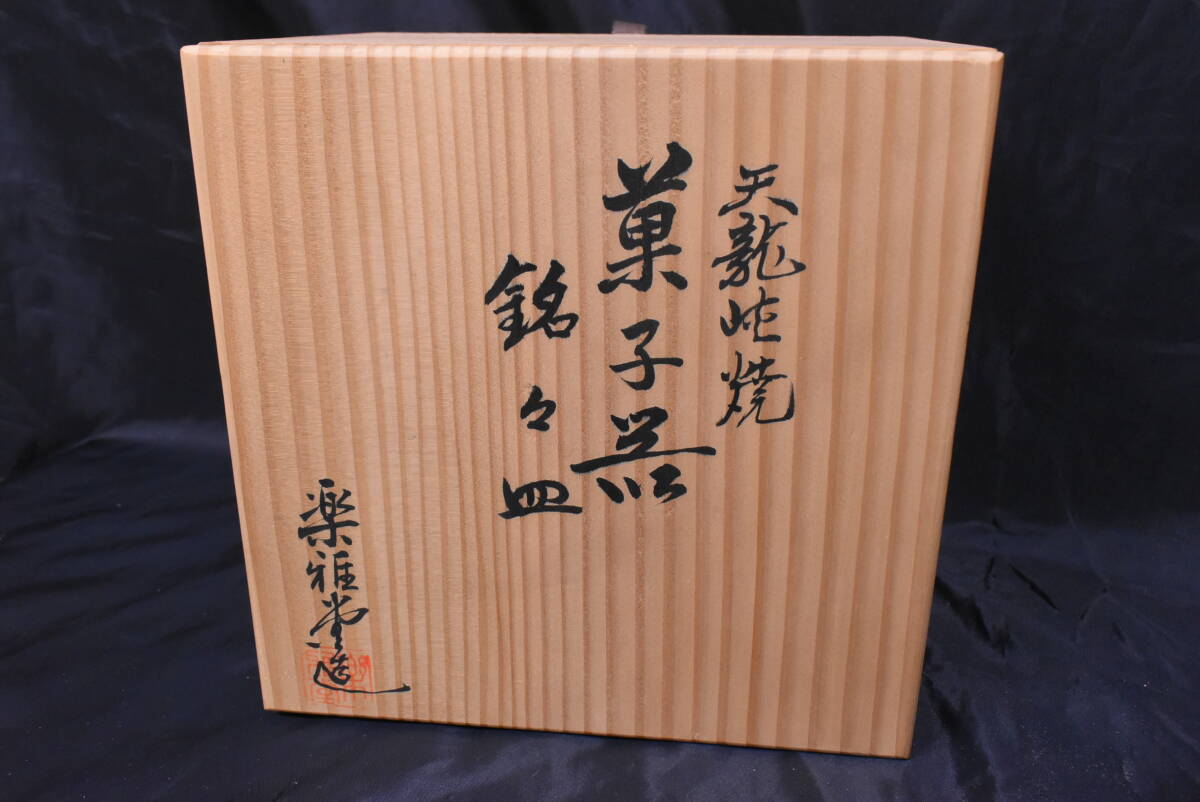 天龍峡焼
菓子器
銘々皿
楽雅堂造